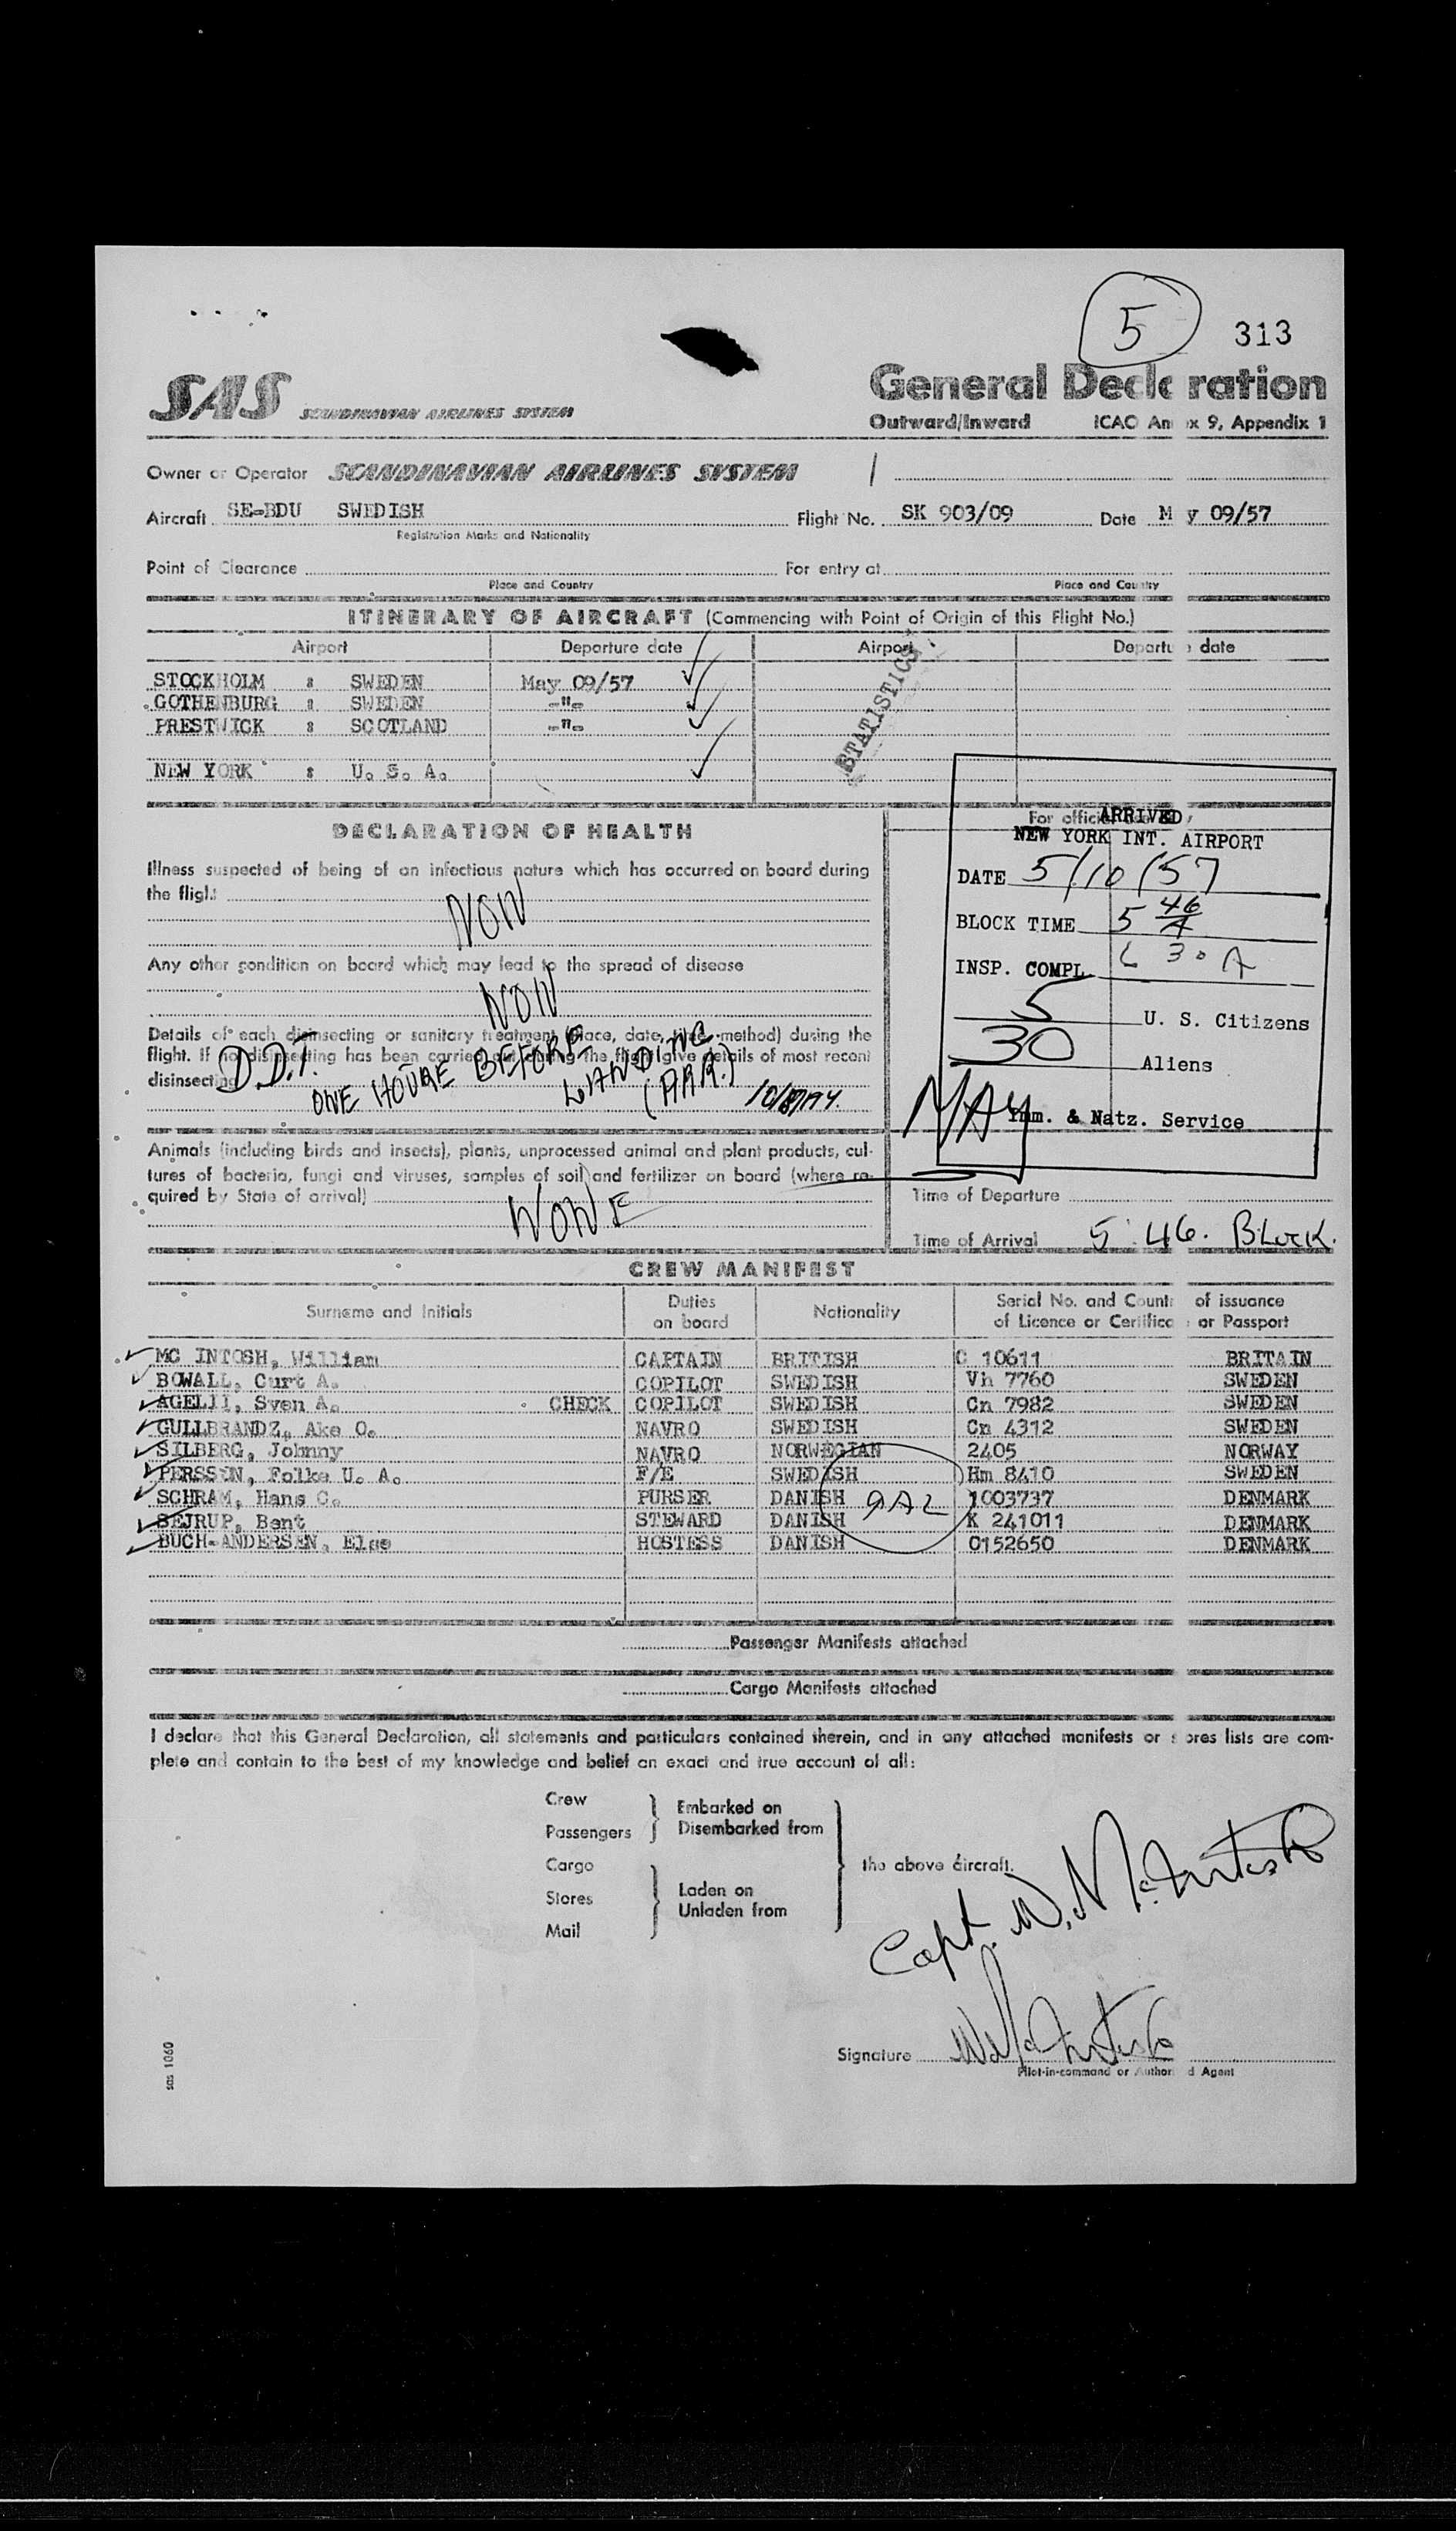 5
313
SAS SCANDINAVIAN AIRLINES SYSTEM
General Declaration
Outward/Inward ICAO Annex 9, Appendix 1
Owner or Operator SCANDINAVIAN AIRLINES SYSTEM
Aircraft SE-BDU SWEDISH Flight No. SK 903/09 Date May 09/57
Registration Marks and Nationality
Point of Clearance For entry at
Place and Country Place and Country
ITINERARY OF AIRCRAFT (Commencing with Point of Origin of this Flight No.)
Airport Departure date Airport Departure date
STOCKHOLM : SWEDEN May 09/57
GOTHENBURG : SWEDEN -"-
PRESTWICK : SCOTLAND -"-
NEW YORK : U. S. A.
STATISTICS
DECLARATION OF HEALTH
Illness suspected of being of an infectious nature which has occurred on board during
the flight
NON
Any other condition on board which may lead to the spread of disease
NON
Details of each disinsecting or sanitary treatment (place, date, time, method) during the
flight. If no disinsecting has been carried out during the flight give details of most recent
disinsecting
D.D.T. ONE HOURE BEFORE LANDING
Animals (including birds and insects), plants, unprocessed animal and plant products, cul-
tures of bacteria, fungi and viruses, samples of soil and fertilizer on board (where re-
quired by State of arrival)
NONE
For official use only
ARRIVED
NEW YORK INT. AIRPORT
DATE 5/10/57
BLOCK TIME 5 46 A
INSP. COMPL 6 30 A
5 U. S. Citizens
30 Aliens
MAY
Imm. & Natz. Service
Time of Departure
Time of Arrival 5:46. BLOCK.
CREW MANIFEST
Surname and Initials Duties on board Nationality Serial No. and Country of issuance of Licence or Certificate or Passport
MC INTOSH, William CAPTAIN BRITISH C 10611 BRITAIN
BOWALL, Curt A. COPILOT SWEDISH Vh 7760 SWEDEN
AGELII, Sven A. CHECK COPILOT SWEDISH Cn 7982 SWEDEN
GULLBRANDZ, Ake O. NAVRO SWEDISH Cn 4312 SWEDEN
SILBERG, Johnny NAVRO NORWEGIAN 2405 NORWAY
PERSSON, Folke U. A. F/E SWEDISH Hm 8410 SWEDEN
SCHRAM, Hans C. PURSER DANISH 1003737 DENMARK
SEJRUP, Bent STEWARD DANISH K 241011 DENMARK
BUCH-ANDERSEN, Else HOSTESS DANISH 0152650 DENMARK
9AL
Passenger Manifests attached
Cargo Manifests attached
I declare that this General Declaration, all statements and particulars contained therein, and in any attached manifests or stores lists are com-
plete and contain to the best of my knowledge and belief an exact and true account of all:
Crew
Passengers
Embarked on
Disembarked from
Cargo
Stores
Mail
Laden on
Unladen from
the above aircraft.
Capt. W. McIntosh
Signature W McIntosh
Pilot-in-command or Authorized Agent
sas 1060